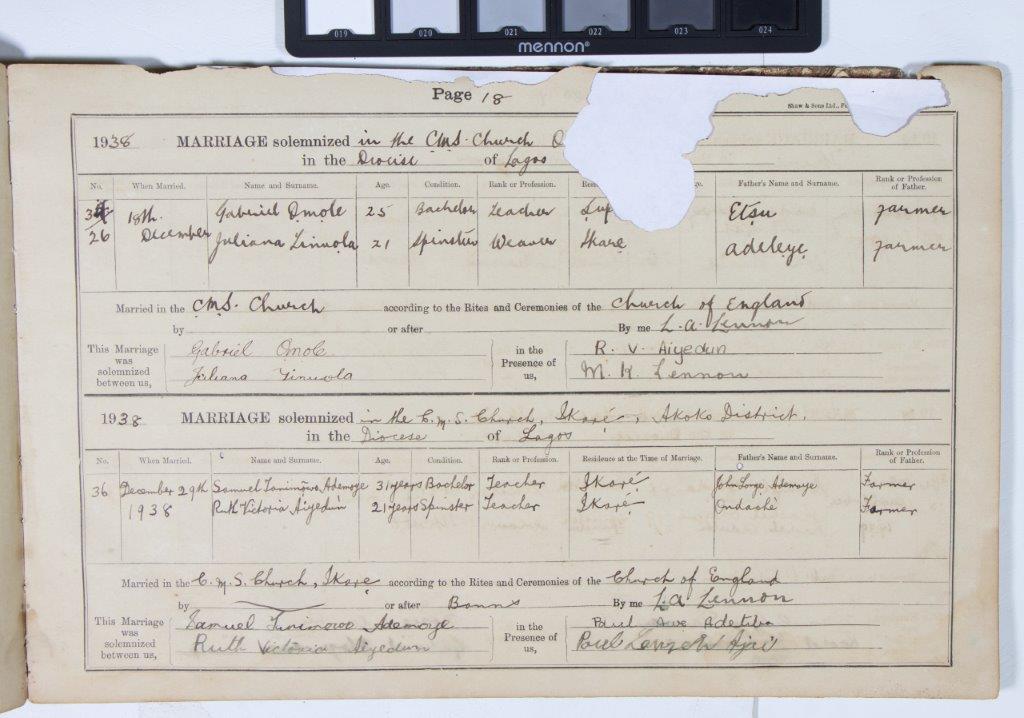 019 020 021 022 023 024
mennon®
Page 18
Shaw & Sons Ltd.,
1938 MARRIAGE solemnized in the CMS. Church
in the Diocise of Lagos
No. When Married. Name and Surname. Age. Condition. Rank or Profession. Father's Name and Surname. Rank or Profession of Father.
18th Gabriel Ọmọle 25 Bachelor Teacher Etsu Farmer
26 December Juliana Tinuola 21 Spinster Weaver Ikare Adeleye Farmer
Married in the CMS. Church according to the Rites and Ceremonies of the Church of England
by or after By me L. A. Lennon
This Marriage was solemnized between us, Gabriel Omole in the Presence of us, R. V. Aiyedun
Juliana Tinuola M. K. Lennon
1938 MARRIAGE solemnized in the C.M.S. Church, Ikaré, Akoko District.
in the Diocese of Lagos
No. When Married. Name and Surname. Age. Condition. Rank or Profession. Residence at the Time of Marriage. Father's Name and Surname. Rank or Profession of Father.
36 December 29th Samuel Ademoye 31 years Bachelor Teacher Ikaré John Ademoye Farmer
1938 Ruth Victoria Aiyedun 21 years Spinster Teacher Ikaré Ondachè Farmer
Married in the C.M.S. Church, Ikare according to the Rites and Ceremonies of the Church of England
by or after Banns By me L. A. Lennon
This Marriage was solemnized between us, Samuel Ademoye in the Presence of us, Paul Awe Adetiba
Ruth Victoria Aiyedun Paul